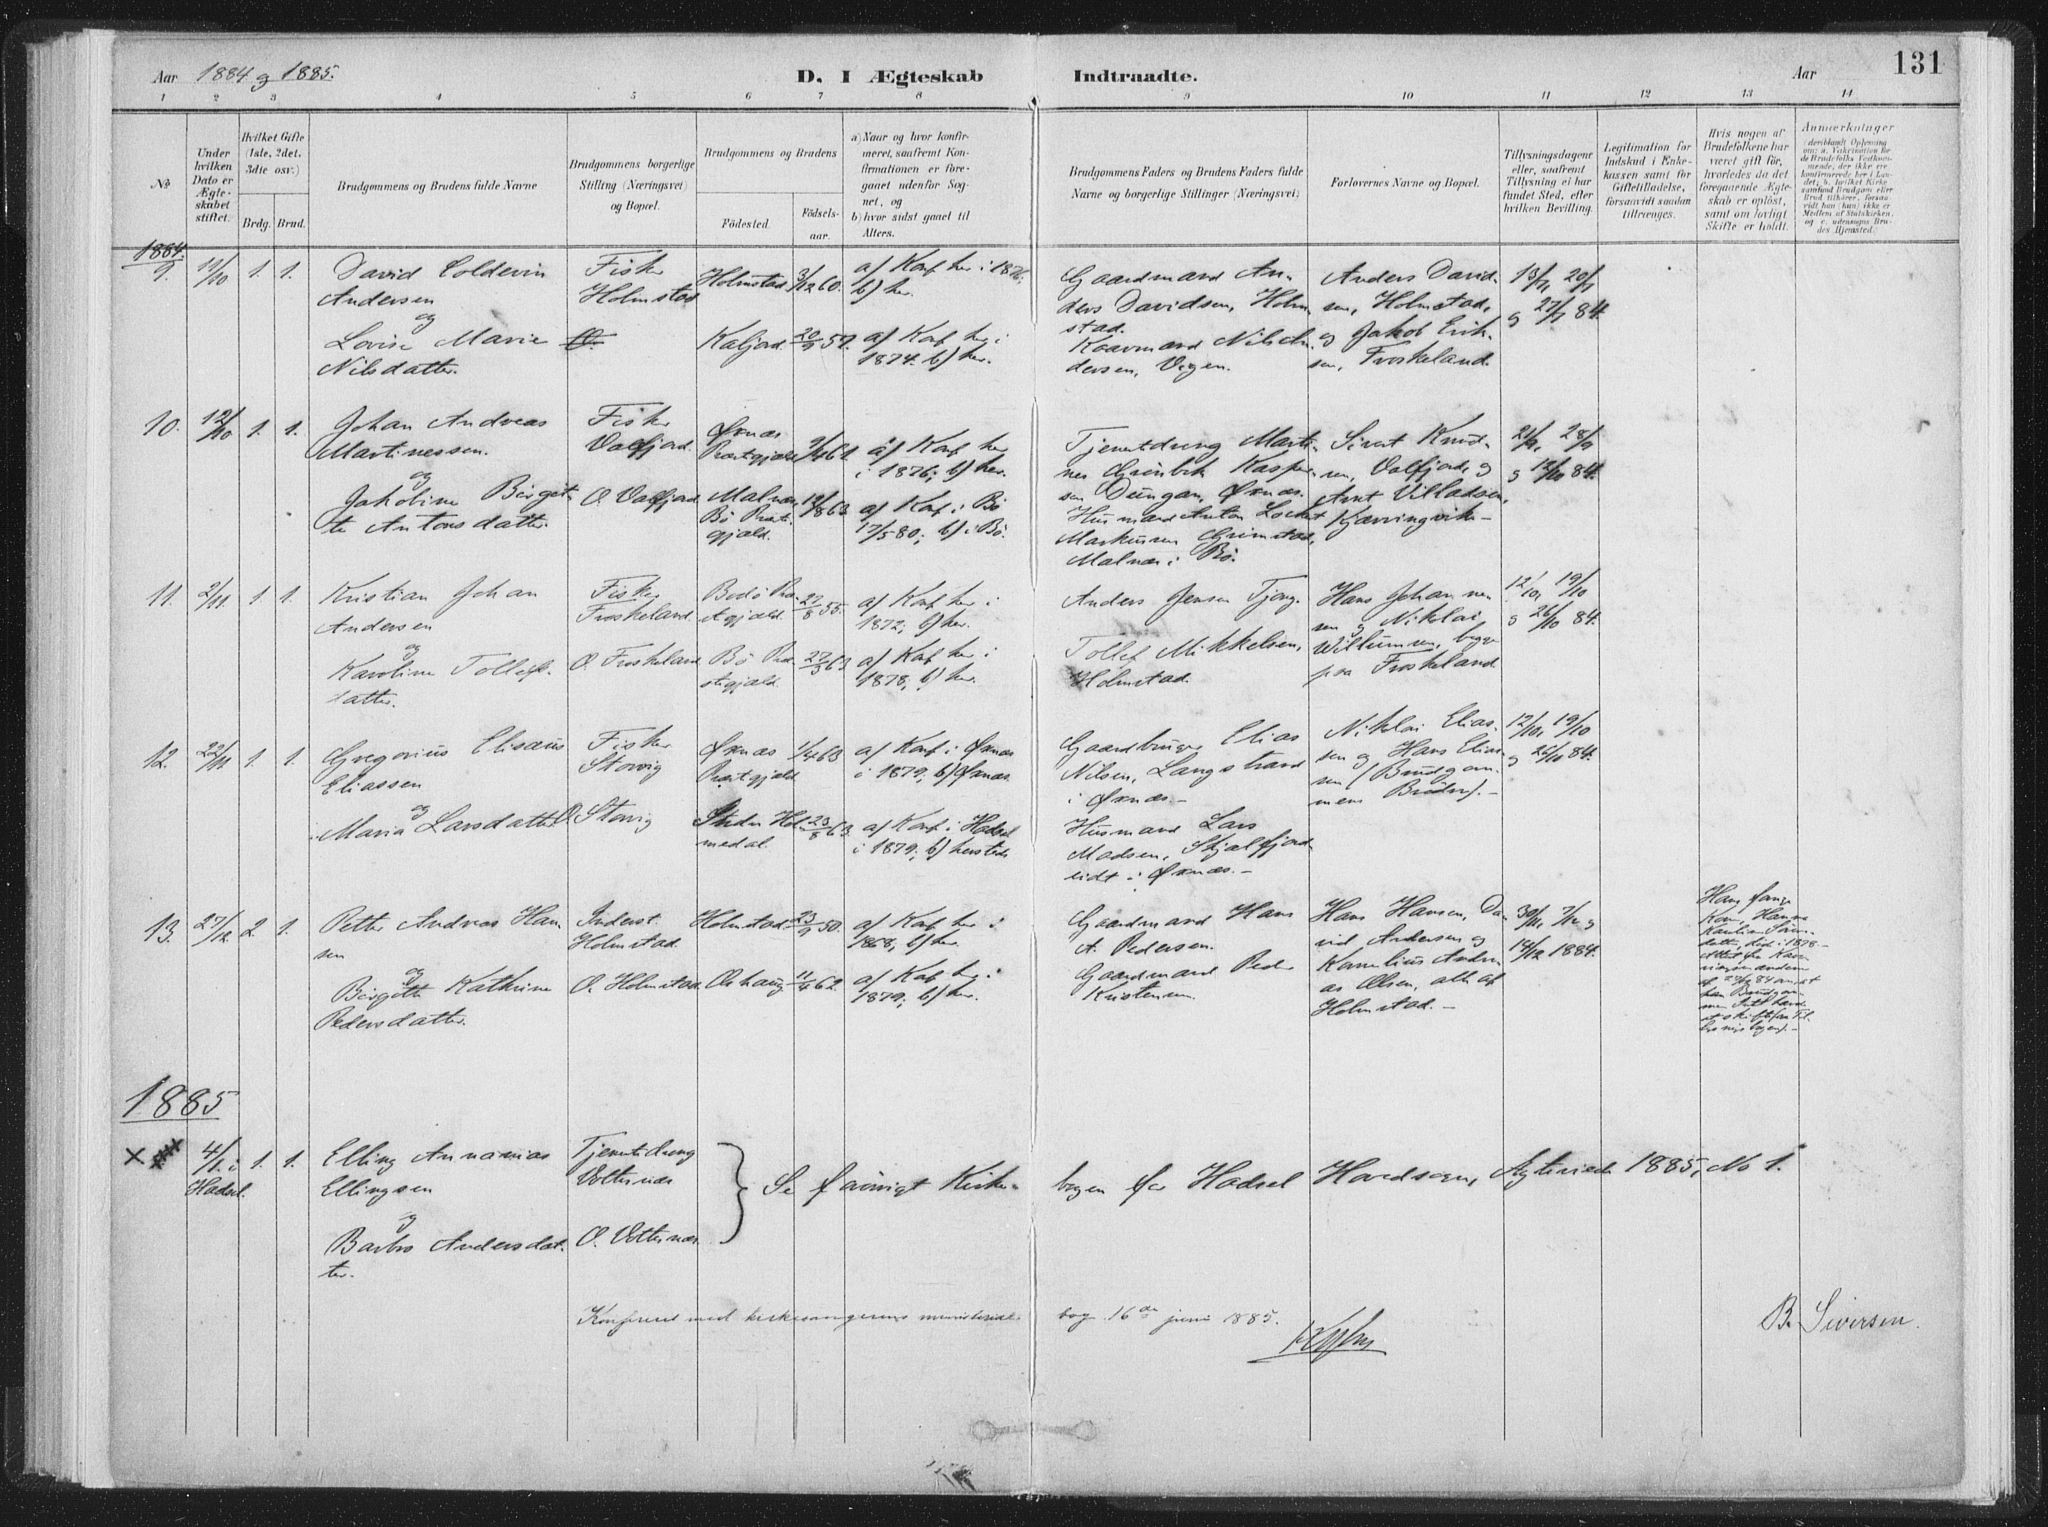 131
Aar 1884 og 1885.
D. I Ægteskab Indtraadte.
Aar
1 2 3 4 5 6 7 8 9 10 11 12 13 14
No
Under hvilken Dato er Ægteskabet stiftet.
Hvilket Gifte (1ste, 2det, 3die osv.)
Brdg. Brud.
Brudgommens og Brudens fulde Navne
Brudgommens borgerlige Stilling (Næringsvei) og Bopæl.
Brudgommens og Brudens
Födested.
Födselsaar.
a) Naar og hvor konfirmeret, saafremt Konfirmationen er foregaaet udenfor Sognet, og
b) hvor sidst gaaet til Alters.
Brudgommens Faders og Brudens Faders fulde Navne og borgerlige Stillinger (Næringsvei)
Forlovernes Navne og Bopæl.
Tillysningsdagene eller, saafremt Tillysning ei har fundet Sted, efter hvilken Bevilling.
Legitimation for Indskud i Enkekassen samt for Giftetilladelse, forsaavidt saadan tiltrænges.
Hvis nogen af Brudefolkene har været gift för, hvorledes da det foregaaende Ægteskab er oplöst, samt om lovligt Skifte er holdt.
Anmærkninger
1884.
9. 11/10 1. 1.
David Coldevin
Andersen
og
Lovise Marie
Nilsdatter.
Fisker
Holmstad
Holmstad 3/12 60.
a) Konf her i 1876.
b) her.
Kaljord. 20/9 57.
a) Konf her i
1874. b) her.
Gaardmand An-
ders Davidsen, Holm
stad.
Kaarmand Nils An-
dersen, Vegen.
Anders David-
sen, Holmstad,
og Jakob Erik-
sen, Froskeland.
13/7, 20/7
og 27/7 84.
10. 12/10 1. 1.
Johan Andreas
Martinessen.
og
Jakobine Birgit-
te Antonsdatter.
Fisker
Valfjord.
O. Valfjord
Øxnæs
Præstgjæld
a) Konf her
i 1876; b) her.
Malnæs
Bö Præst-
gjæld.
12/8 63.
a) Konf. i Bö
17/5 80; b) i Bö.
Tjenestdreng Marti-
nes Kasper-
sen Dungan, Øxnæs.
Husmand Anton
Markussen Grimstad,
Malnæs i Bö.
Sivert Knud-
sen, Valfjord, og
Arnt Villadsen,
Kjærringvik-
21/9, 28/9
og 12/10 84.
11. 2/11 1. 1.
Kristian Johan
Andersen
og
Karoline Tollefs-
datter.
Fisker
Froskeland.
O. Froskeland
Bodö Præ-
stgjæld. 27/8 55.
a) Konf her i
1872; b) her.
Bö Præ-
stegjæld. 27/3 63.
a) Konf her i
1878; b) her.
Anders Jensen Tjong.
Tollef Mikkelsen,
Holmstad.
Hans Johannes-
sen og Nikolai
Willumsen, begge
paa Froskeland
12/10, 19/10
og 26/10 84.
12. 22/11 1. 1.
Gregorius Elisæus
Eliassen
og
Maria Larsdatter
Fisker
Storvig
O. Storvig
Øxnæs
Præstgjæld 1/4 63
a) Konf i Øxnæs
i 1879, b) Øxnæs.
medal. 23/8 63.
a) Konf i Hadsel
i 1879; b) hersteds
Gaardbruger Elias
Nilsen, Langstrand
i Øxnæs.-
Husmand Lars
Madsen, Skjælfjord-
eidt i Øxnæs.-
Nikolai Elias-
sen og Hans Elias-
sen (Brudgom-
mens Brödre).-
12/10, 19/10
og 26/10 84.
13. 27/12 2. 1.
Petter Andreas Han-
sen
og
Birgitte Kathrine
Pedersdatter.
Inderst.
Holmstad.
O. Holmstad
Holmstad 23/9 50.
a) Konf her i
1868; b) her.
11/4 62.
a) Konf her i
1879; b) her.
Gaardmand Hans
A. Pedersen.
Gaardmand Peder
Kristensen
Hans Hansen, Da-
vid Andersen og
Kornelius Andre-
as Olsen, alle af
Holmstad.-
30/11, 7/12 og
14/12 1884.
Kone, Hanna
död i 1878-
1885
× 4/1 i 1. 1.
Hadsel
Elling Ananias
Ellingsen
og
Barbro Andersdat-
ter.
Tjenestdreng
Vottesnæs
O. Vottesnæs
Se forövrigt Kirke-
bogen for Hadsel Hovedsogn, Ægteviede 1885, No 1.
Konfereret med kirkesangerens ministerial-
bog 16de juni 1885.
B. Siversen.